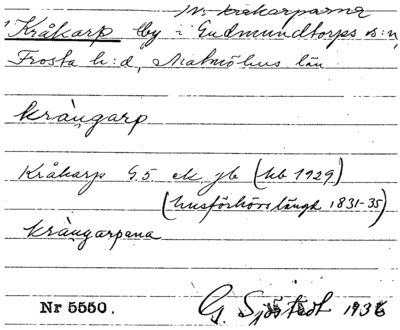 Kråkarp by i Gudmundtorps s:n,
Frosta h:d, Malmöhus län
kràngarp
Kråkarp G.5 ek jb (kb 1929)
(husförhörslängh 1831-35)
kràngarpana
Nr 5550. G. Sjöstedt 1936